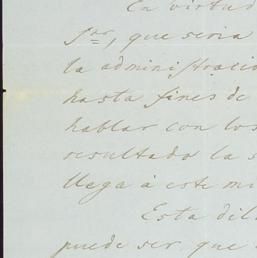 En virtud
Sor, que seria
la administracio
hasta fines de
hablar con los
resultado la s
llega à este mi
Esta dil
puede ser, que